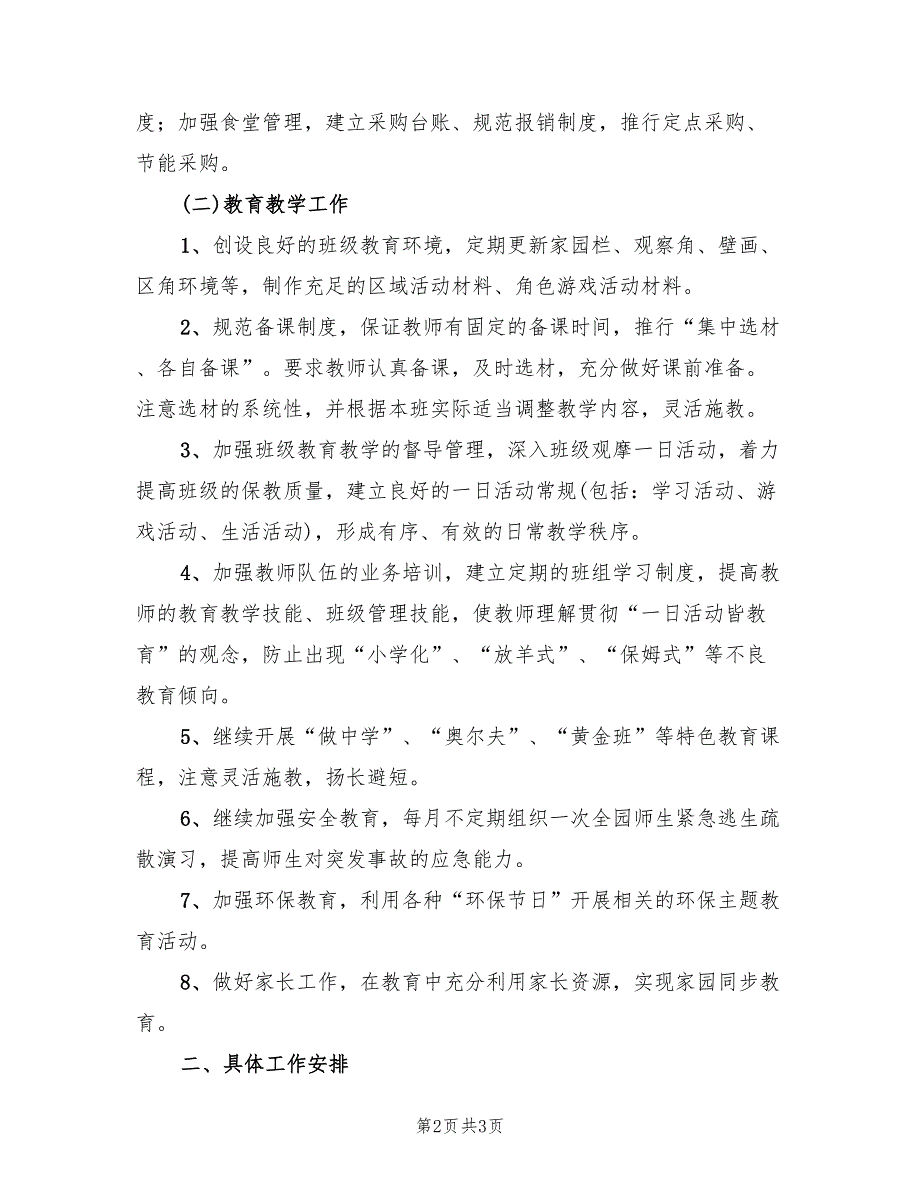 度；加强食堂管理，建立采购台账、规范报销制度，推行定点采购、
节能采购。
(二)教育教学工作
1、创设良好的班级教育环境，定期更新家园栏、观察角、壁画、
区角环境等，制作充足的区域活动材料、角色游戏活动材料。
2、规范备课制度，保证教师有固定的备课时间，推行“集中选材
、各自备课”。要求教师认真备课，及时选材，充分做好课前准备。
注意选材的系统性，并根据本班实际适当调整教学内容，灵活施教。
3、加强班级教育教学的督导管理，深入班级观摩一日活动，着力
提高班级的保教质量，建立良好的一日活动常规(包括：学习活动、游
戏活动、生活活动)，形成有序、有效的日常教学秩序。
4、加强教师队伍的业务培训，建立定期的班组学习制度，提高教
师的教育教学技能、班级管理技能，使教师理解贯彻“一日活动皆教
育”的观念，防止出现“小学化”、“放羊式”、“保姆式”等不良
教育倾向。
5、继续开展“做中学”、“奥尔夫”、“黄金班”等特色教育课
程，注意灵活施教，扬长避短。
6、继续加强安全教育，每月不定期组织一次全园师生紧急逃生疏
散演习，提高师生对突发事故的应急能力。
7、加强环保教育，利用各种“环保节日”开展相关的环保主题教
育活动。
8、做好家长工作，在教育中充分利用家长资源，实现家园同步教
育。
二、具体工作安排
第2页共3页